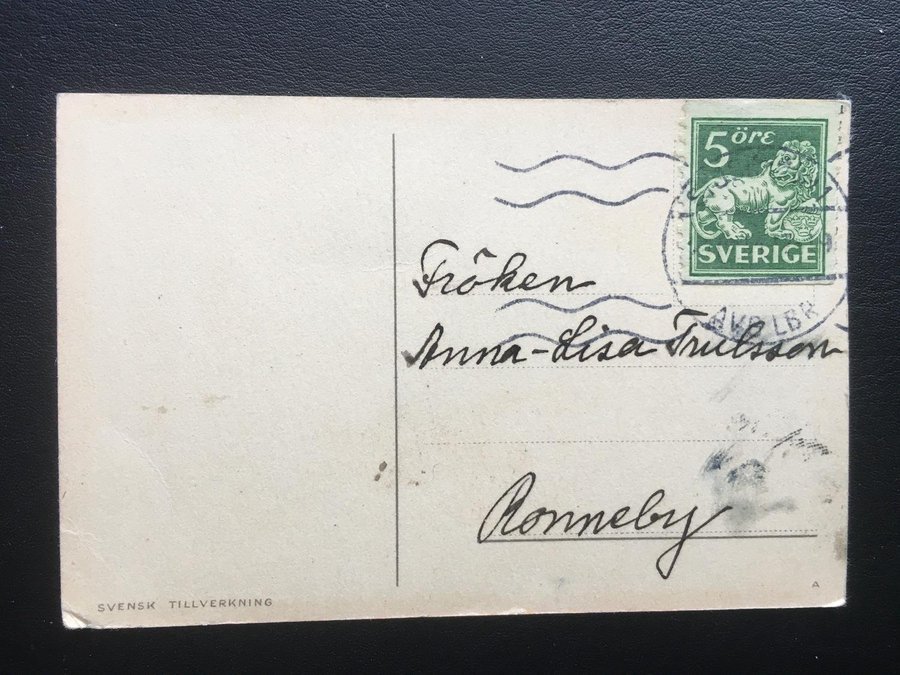 5 öre
SVERIGE
AVG LBR
Fröken
Anna-Lisa Trulsson
Ronneby
SVENSK TILLVERKNING
A